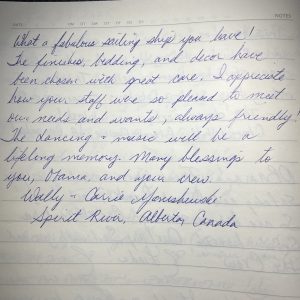 DATE: NOTES
What a fabulous sailing ship you have!
The finishes, bedding, and decor have
been chosen with great care. I appreciate
how your staff were so pleased to meet
our needs and wants, always friendly!
The dancing + music will be a
lifelong memory. Many blessings to
you, Otama, and your crew.
Wally + Carrie
Spirit River, Alberta Canada